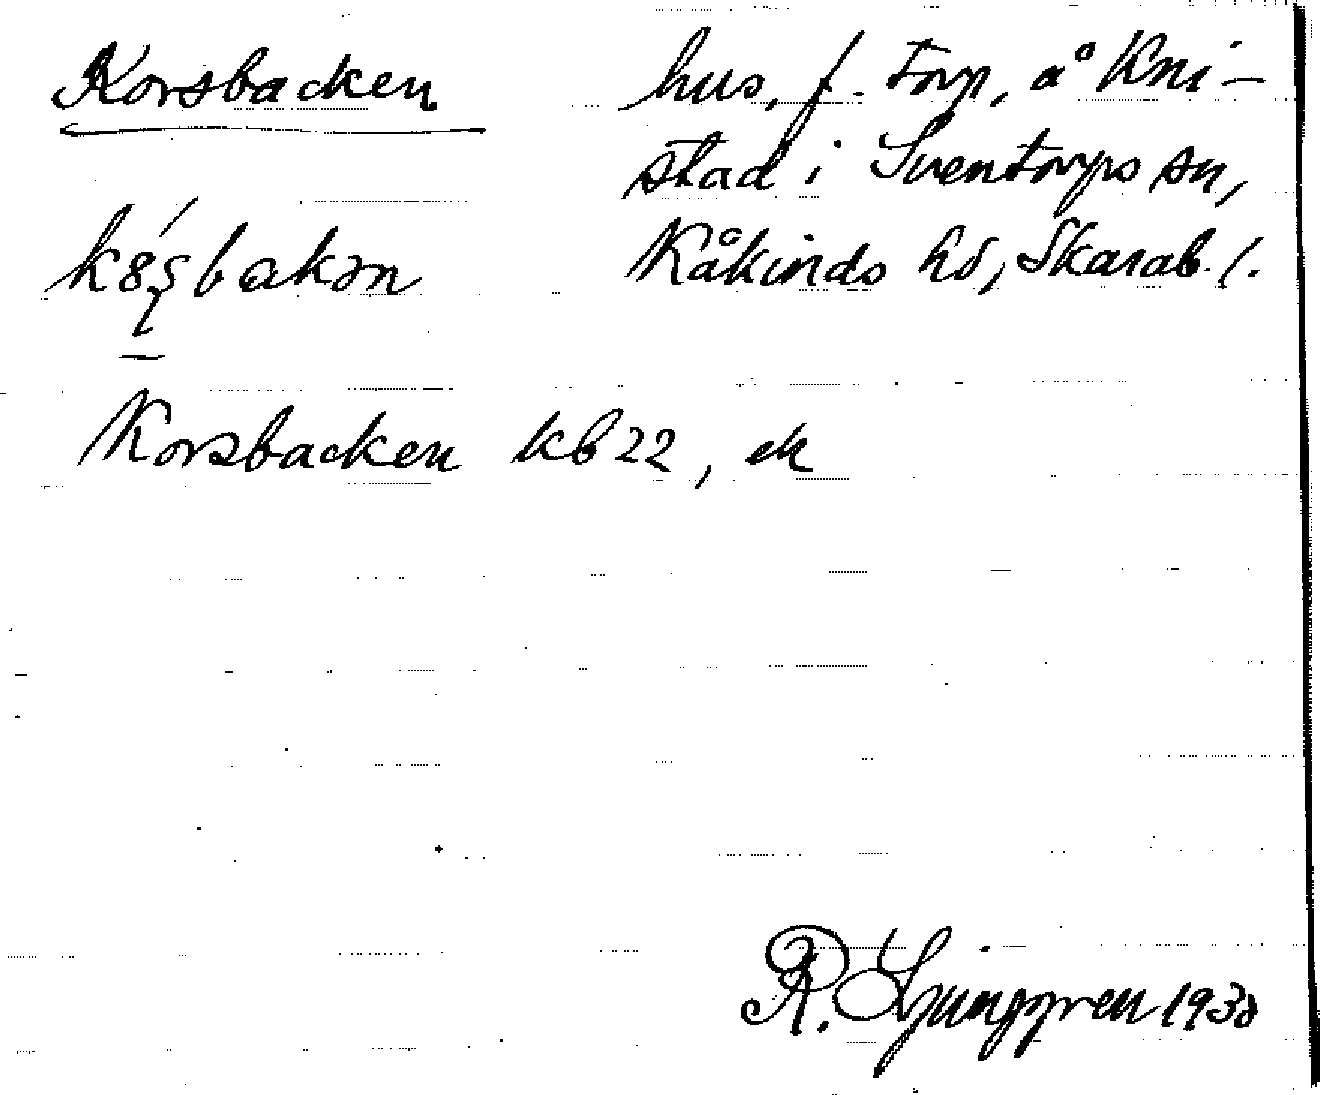 Korsbacken
hus, f. torp, å Kni-
stad i Sventorps sn,
Kåkinds hd, Skarab. l.
Korsbacken kb 22, ek
R. Ljunggren 1930